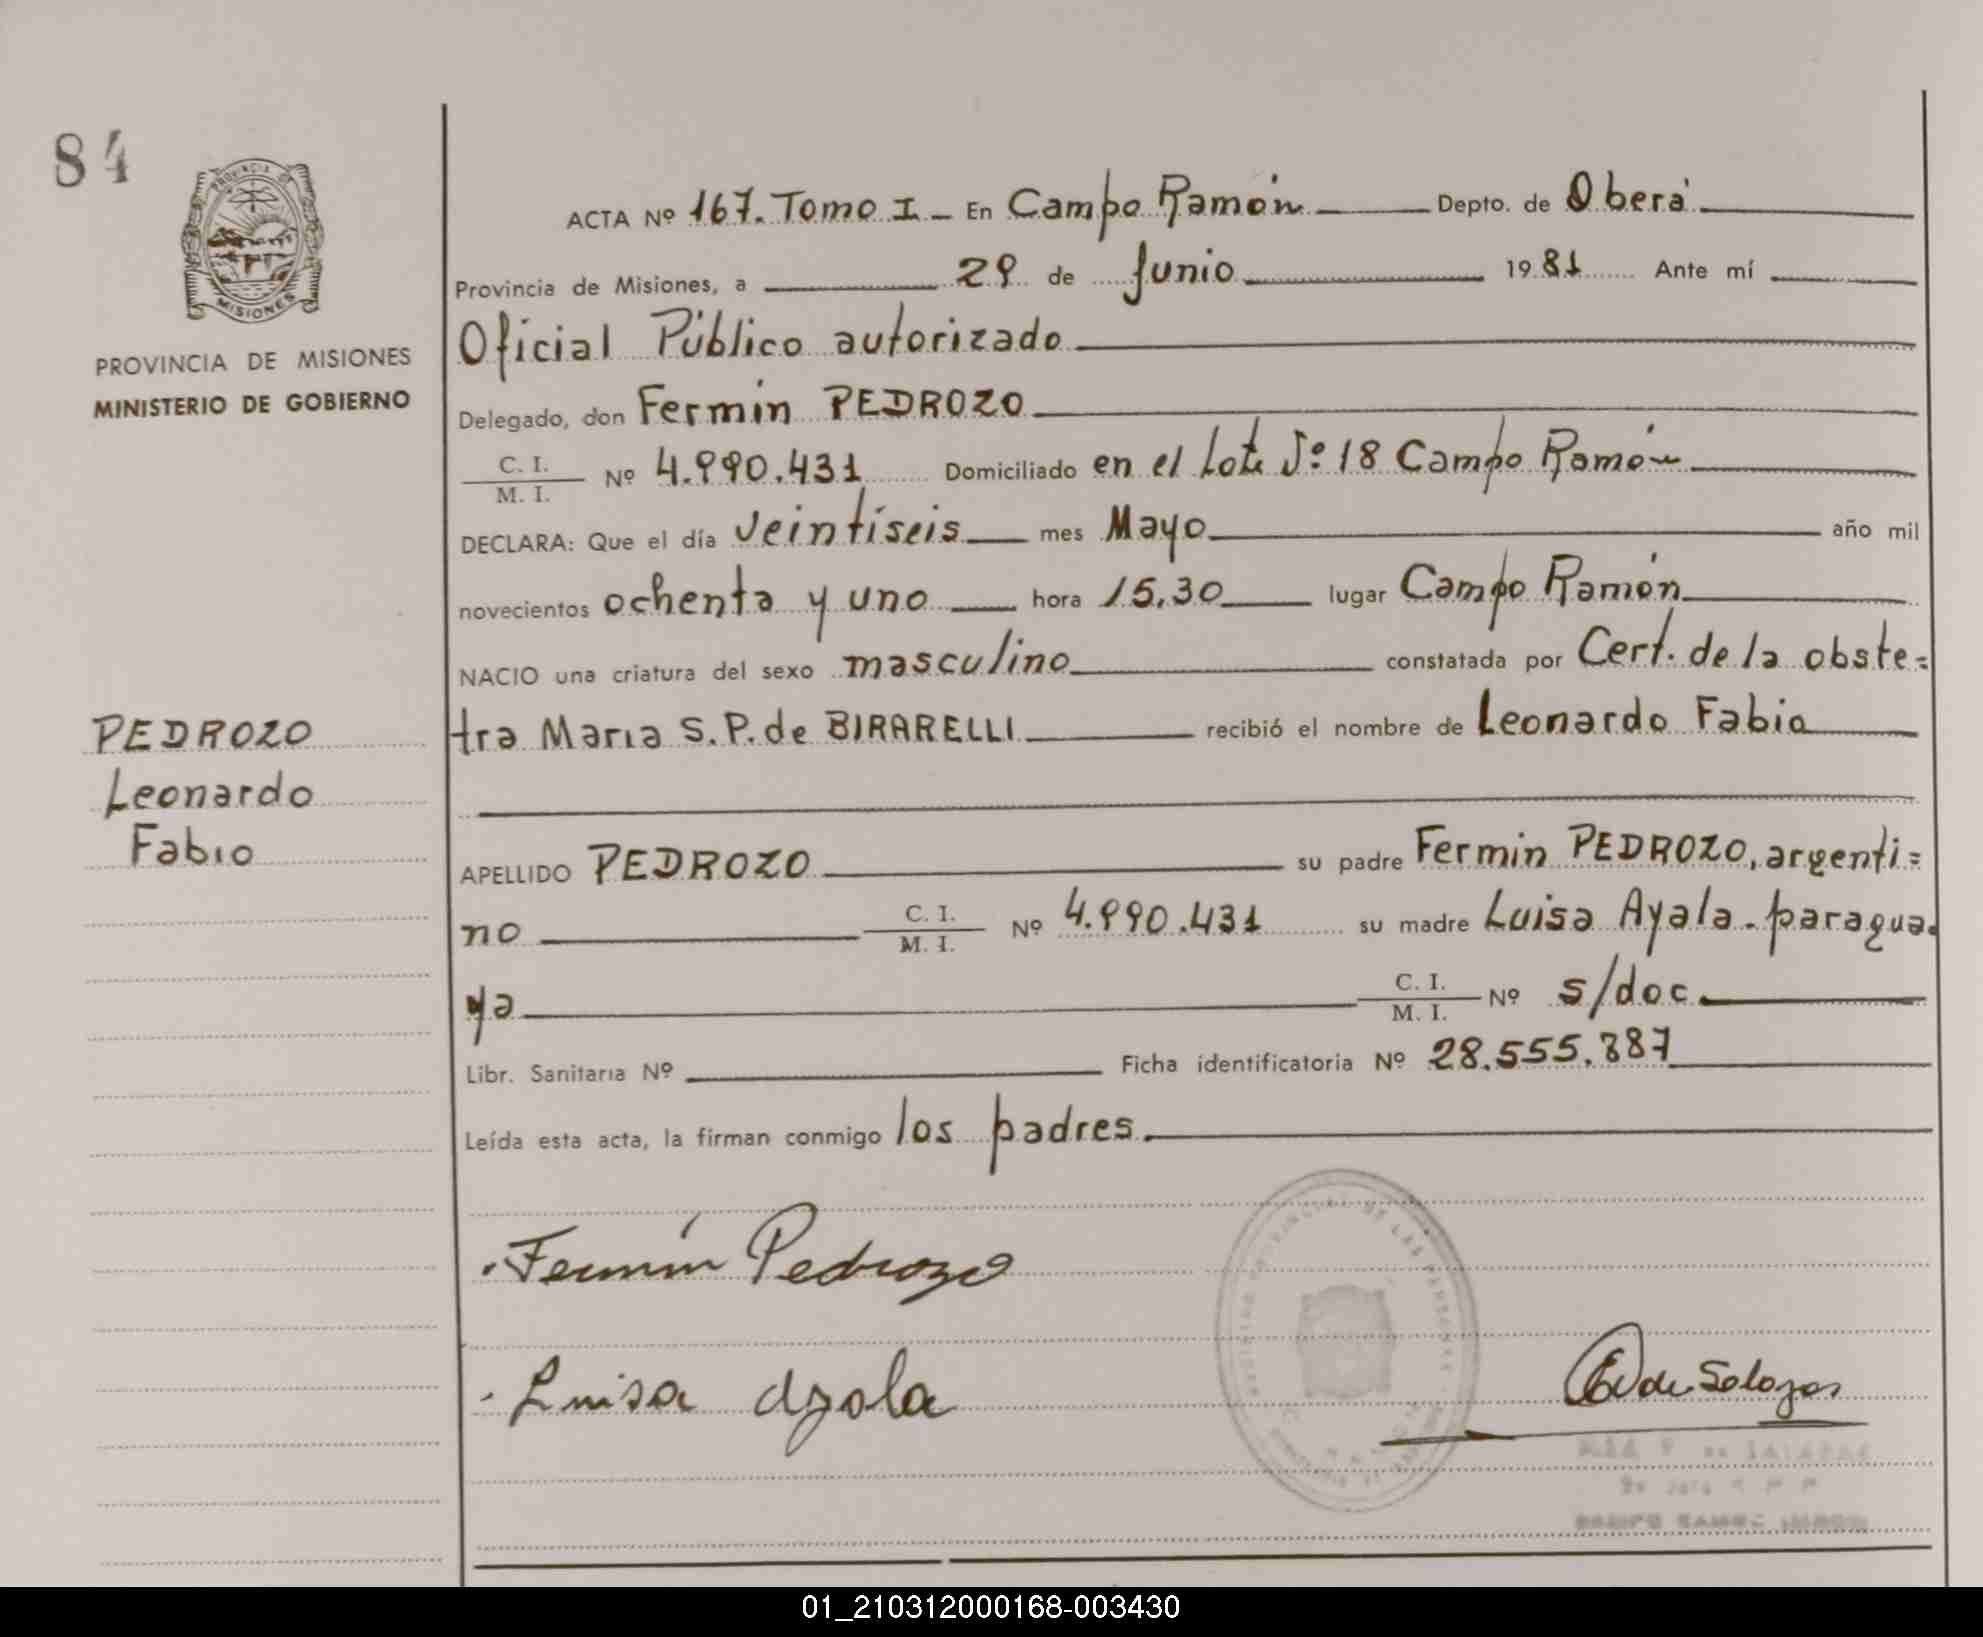 84
PROVINCIA DE
MISIONES
PROVINCIA DE MISIONES
MINISTERIO DE GOBIERNO
PEDROZO
Leonardo
Fabio
ACTA Nº 167. Tomo I - En Campo Ramón Depto. de Oberá
Provincia de Misiones, a 29 de Junio 1981 Ante mí
Oficial Público autorizado
Delegado, don Fermín PEDROZO
C. I. / M. I. Nº 4.990.431 Domiciliado en el Lote Nº 18 Campo Ramón
DECLARA: Que el día veintíseis mes Mayo año mil
novecientos ochenta y uno hora 15,30 lugar Campo Ramón
NACIO una criatura del sexo masculino constatada por Cert. de la obste=
tra Maria S. P. de BIRARELLI recibió el nombre de Leonardo Fabio
APELLIDO PEDROZO su padre Fermin PEDROZO, argenti=
no C. I. / M. I. Nº 4.990.431 su madre Luisa Ayala - paragua
ya C. I. / M. I. Nº s/doc.
Libr. Sanitaria Nº Ficha identificatoria Nº 28.555.887
Leída esta acta, la firman conmigo los padres.
Fermín Pedrozo
Luisa Ayala
01_210312000168-003430